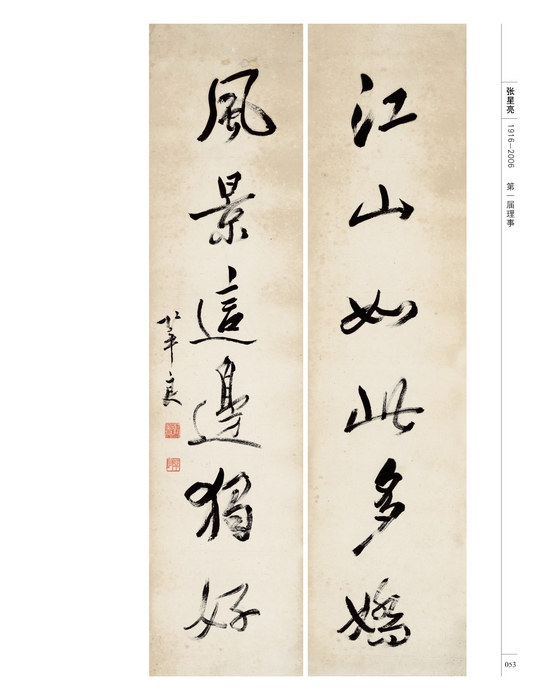 张星亮 1916—2006 第一届理事
江山如此多嬌
風景這邊獨好
053